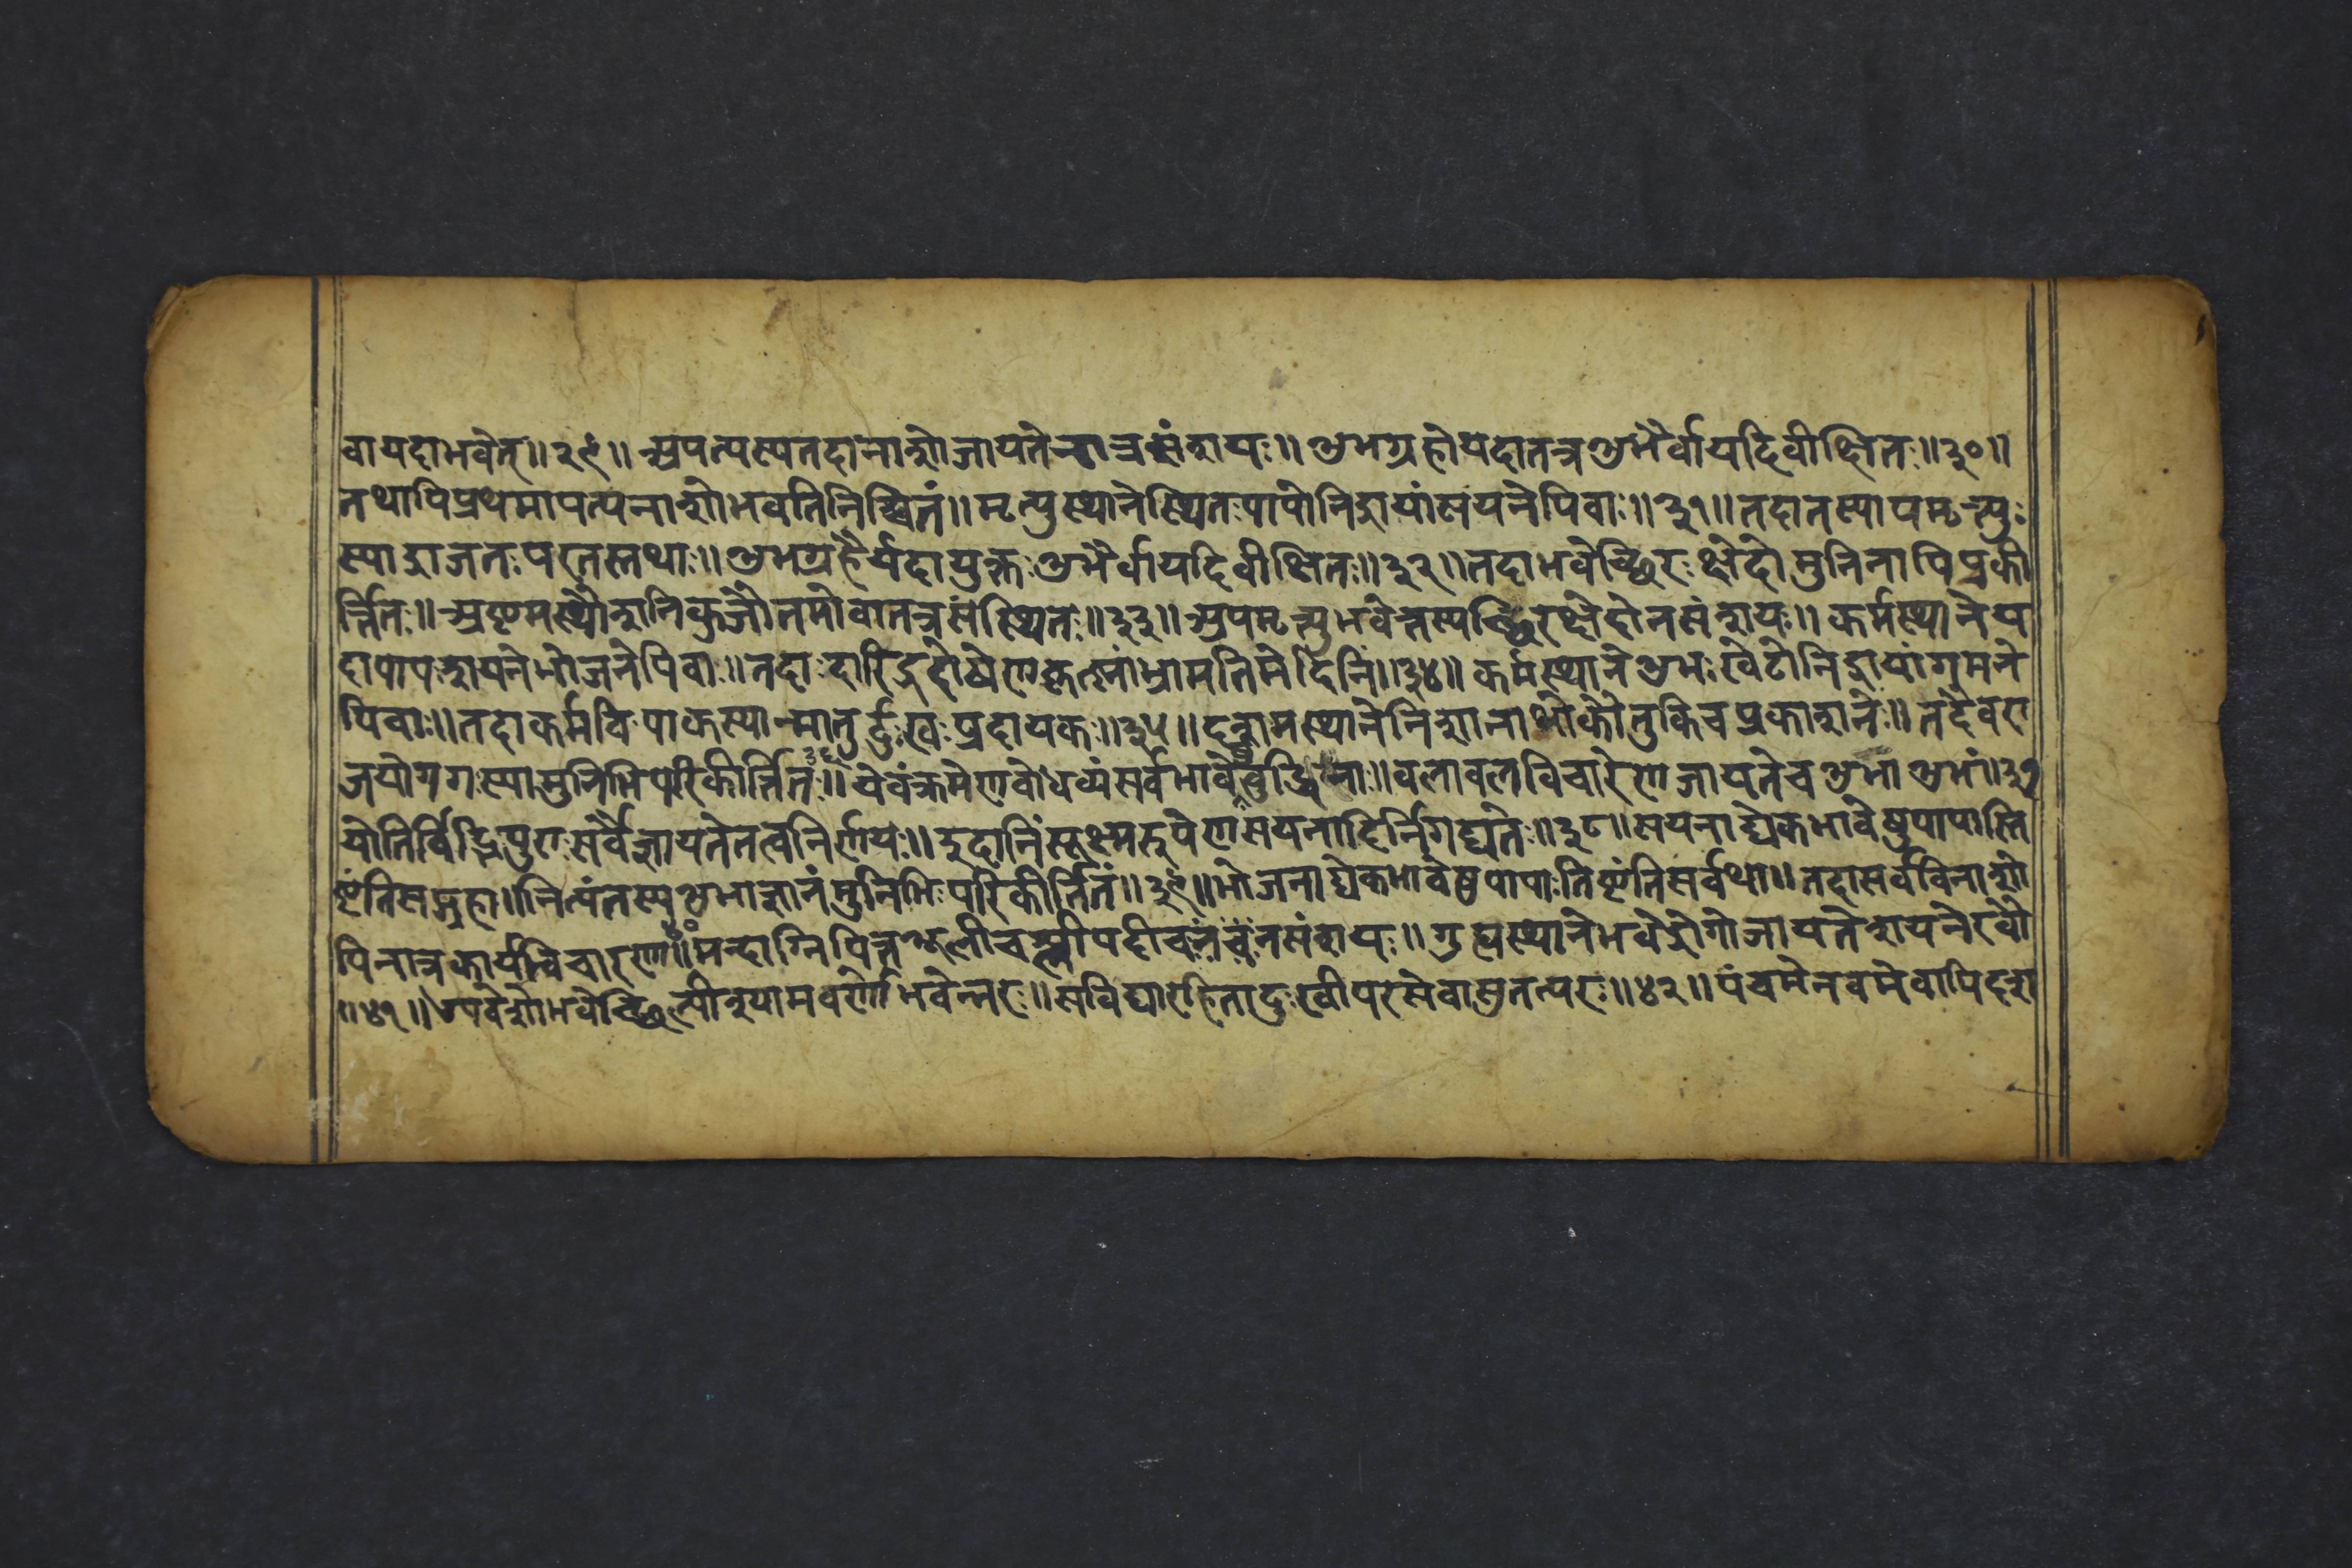 वायदाभवेत्॥२९॥ अपत्यस्यतदानाशोजायतेनात्रसंशयः॥ शुभग्रहोयदातत्रशुभैर्वायदिवीक्षितः॥३०॥
तथापिप्रथमापत्यनाशोभवतिनिश्चितं॥ मृत्युस्थानेस्थितःपापोनिद्रायांसयनेपिवाः॥३१॥ तदातस्यापमृत्युः
स्याद्राजतःपरतस्तथाः॥ शुभग्रहैर्यदायुक्तःशुभैर्वायदिवीक्षितः॥३२॥ तदाभवेच्छिरःक्षेदोमुनिनापिप्रकी
र्त्तितः॥ अष्टमस्थौशनिकुजौतमोवातत्रसंस्थितः॥३३॥ अपमृत्युभवेत्तस्यच्छिरक्षेदोनसंशयः॥ कर्मस्थानेय
दापापःशयनेभोजनेपिवाः॥ तदाःदारिद्रदोषेणकृष्णांभ्रामतिमेदिनिं॥३४॥ कर्मस्थानेशुभःखेटोनिद्रायांगमने
पिवाः॥ तदाकर्मविपाकस्यान्मातुर्दुःखःप्रदायकः॥३५॥ दशमस्थानेनिशानाथोकौतुकिचप्रकाशने॥ तदैवरा
जयोगगःस्यामुनिभिपरिकीर्त्तितः॥३६ येवंक्रमेणवोधव्यंसर्वभावेषुबुद्धिमाः॥ वलावलविचारेणजायतेचशुभाशुभां॥३७
योतिर्विद्भिपुराःसर्वैज्ञायतेतत्वनिर्णयः॥ इदानिंसूक्ष्मरुपेणसयनादिर्निगद्यते॥३८॥ सयनाद्येकभावेषुपापास्ति
ष्टंतिसद्ग्रहा॥ नित्यंतस्यशुभाज्ञानंमुनिभिःपरिकीर्तितं॥३९॥ भोजनाद्येकभावेषुपापाःतिष्टंतिसर्वथा॥ तदासर्वविनाशो
पिनात्रकार्यविचारणा॥४० मन्दाग्निपित्तशूली चनसंशयः॥ गुह्यस्थानेभवेद्रोगोजायतेशयनेरवौ
॥४१॥ भवेच्छि भवेन्नरः॥ सविद्यारहितादुःखीपरसेवासुतत्परः॥४२॥ पंचमेनवमेवापिदश